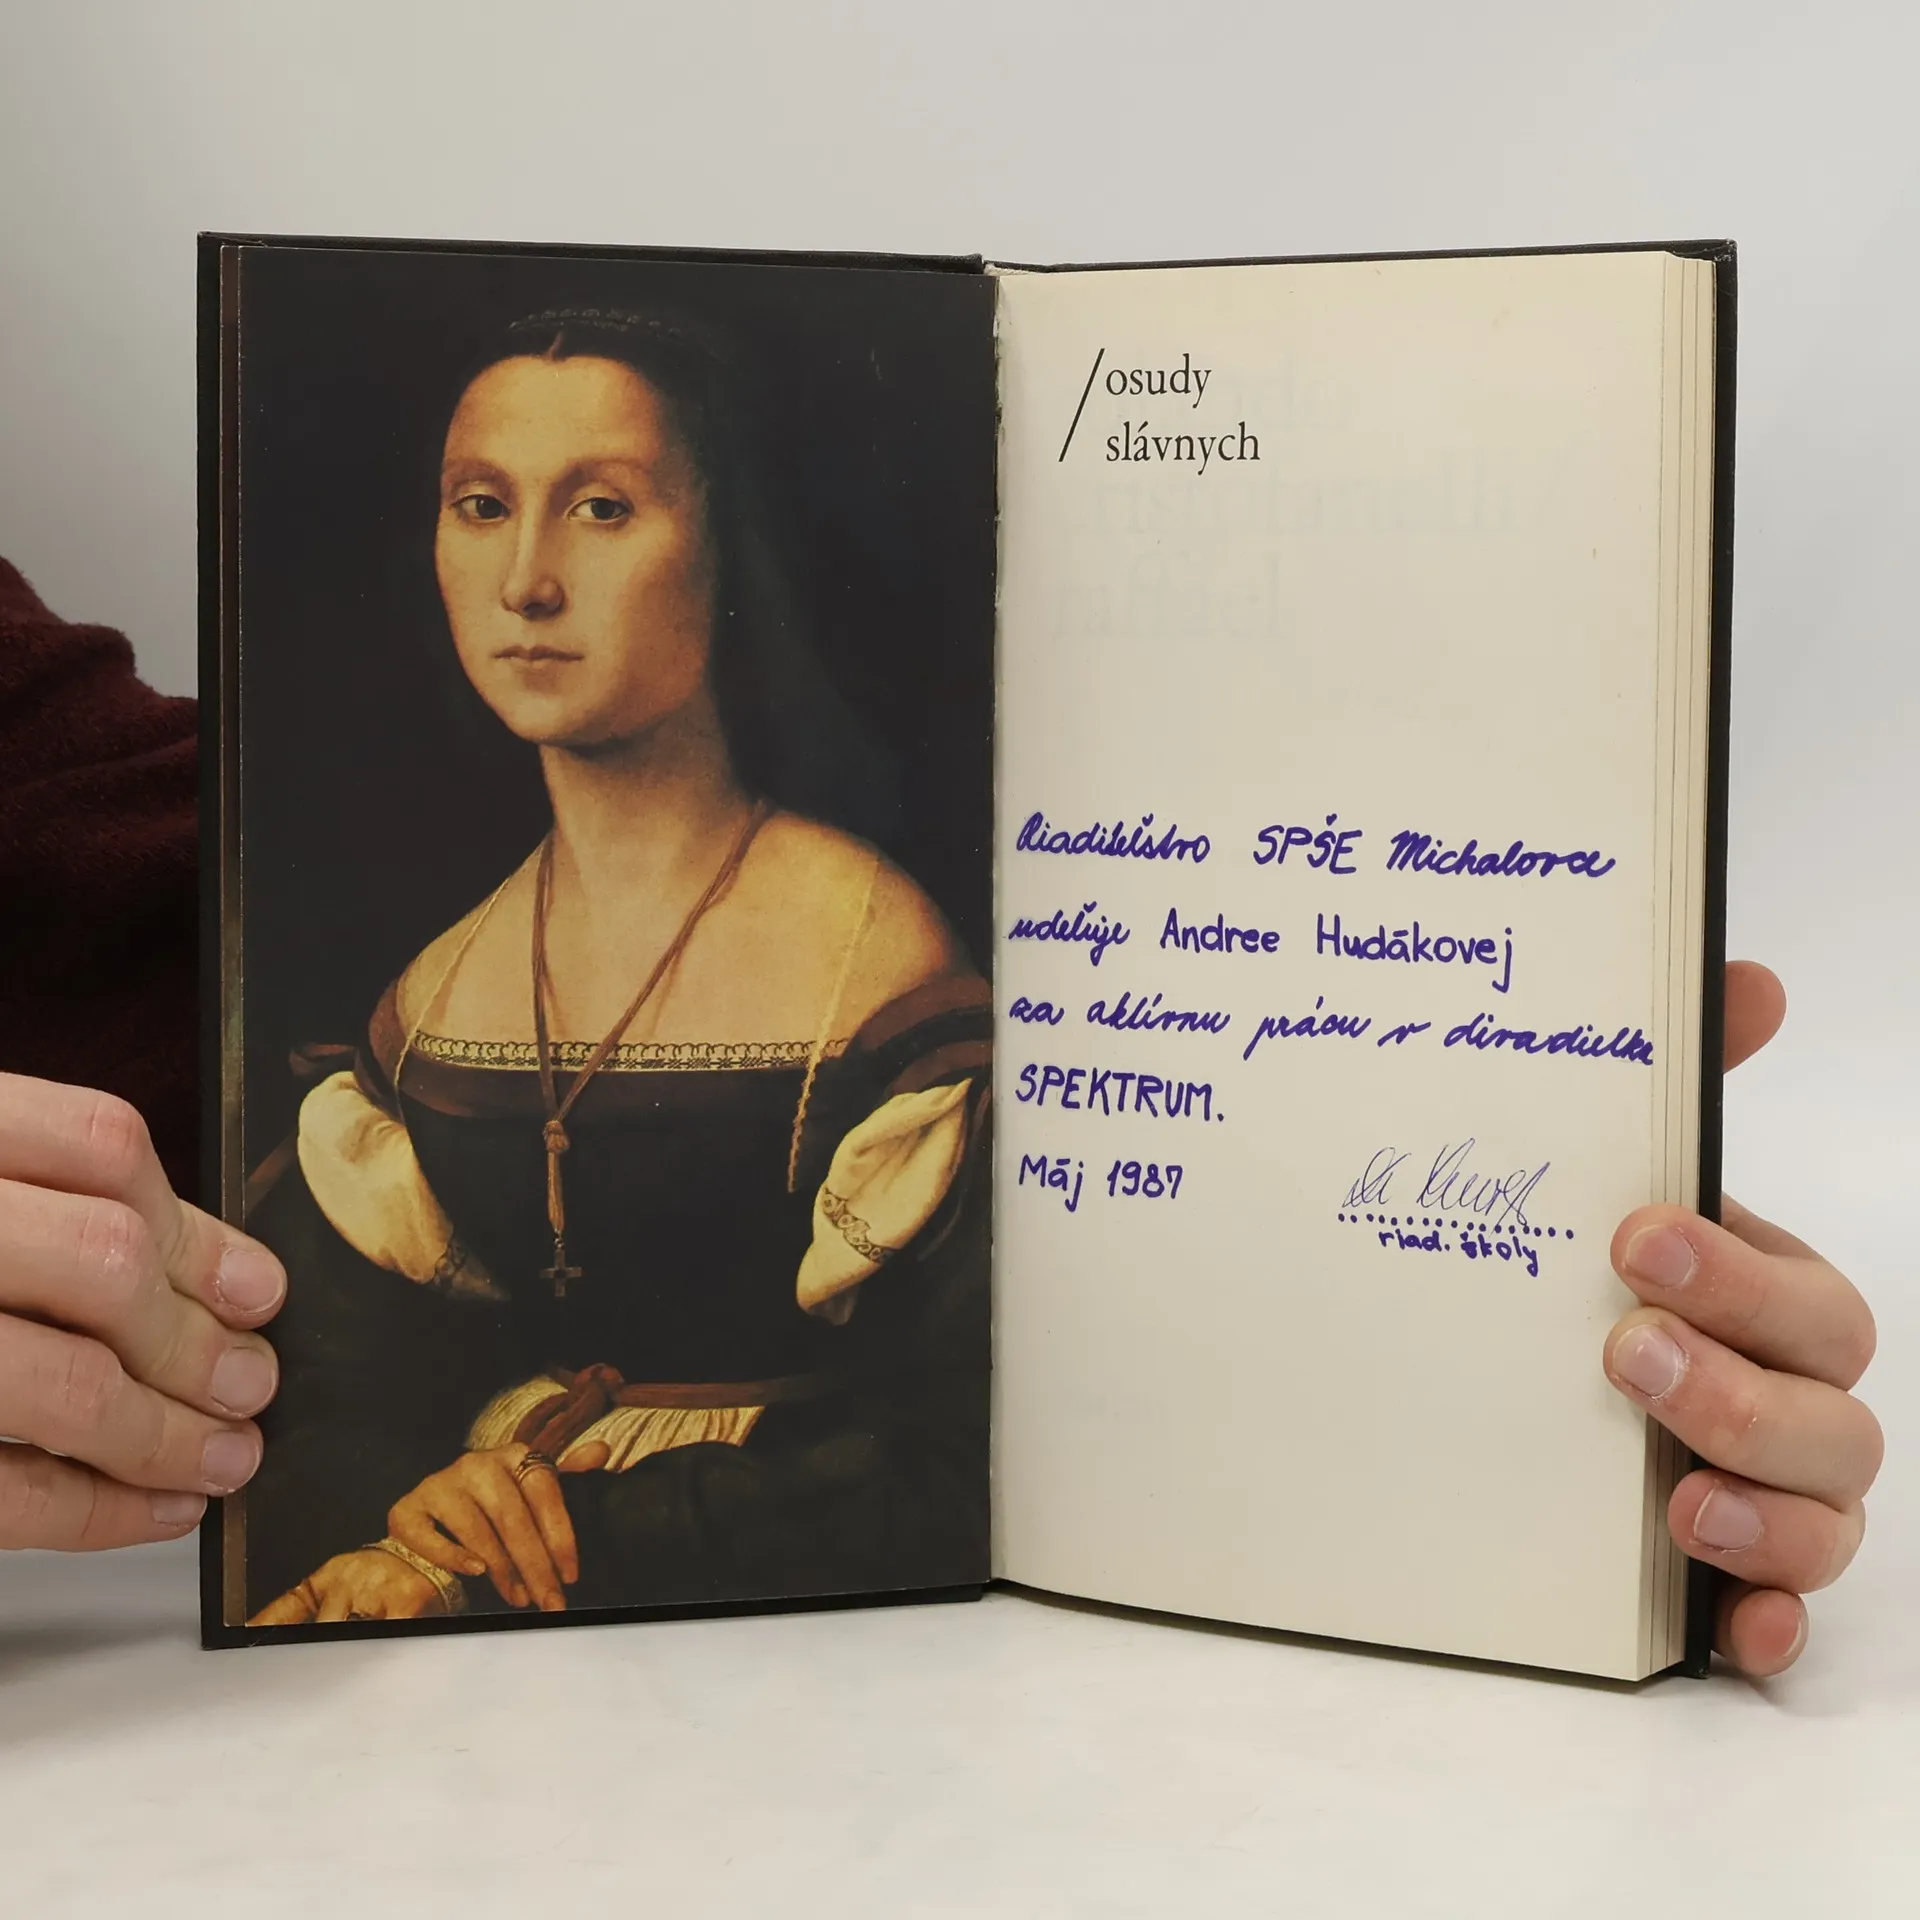 osudy
slávnych
Riaditeľstvo SPŠE Michalovce
udeľuje Andree Hudákovej
za aktívnu prácu v divadielku
SPEKTRUM.
Máj 1987
riad. školy